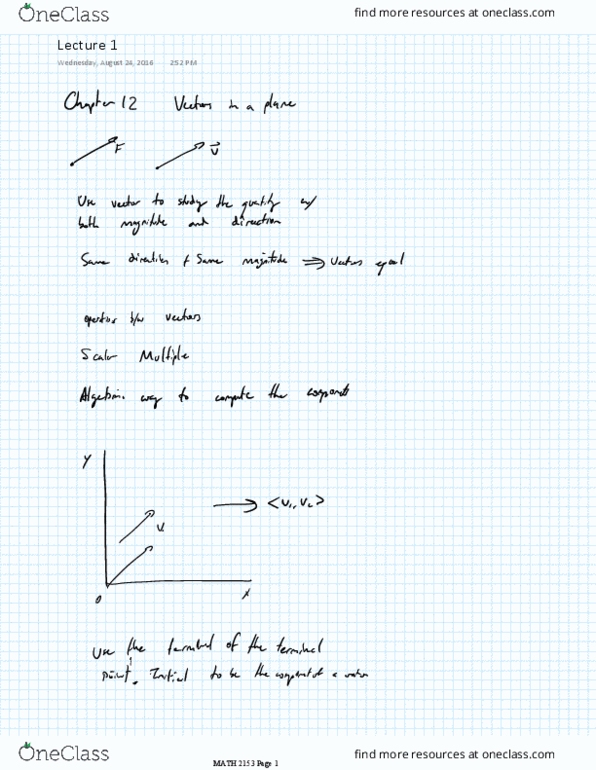 OneClass
find more resources at oneclass.com
Lecture 1
Wednesday, August 24, 2016 2:52 PM
Chapter 12 Vectors in a plane
F v
Use vector to study the quantity w/
both magnitude and direction
Same direction + Same magnitude ⇒ Vectors equal
operation b/w vectors
Scalar Multiple
Algebraic way to compute the components
Y
→ <v₁, v₂>
v
O X
Use the of the terminal
point. Initial to be the component of a vector
OneClass
find more resources at oneclass.com
MATH 2153 Page 1